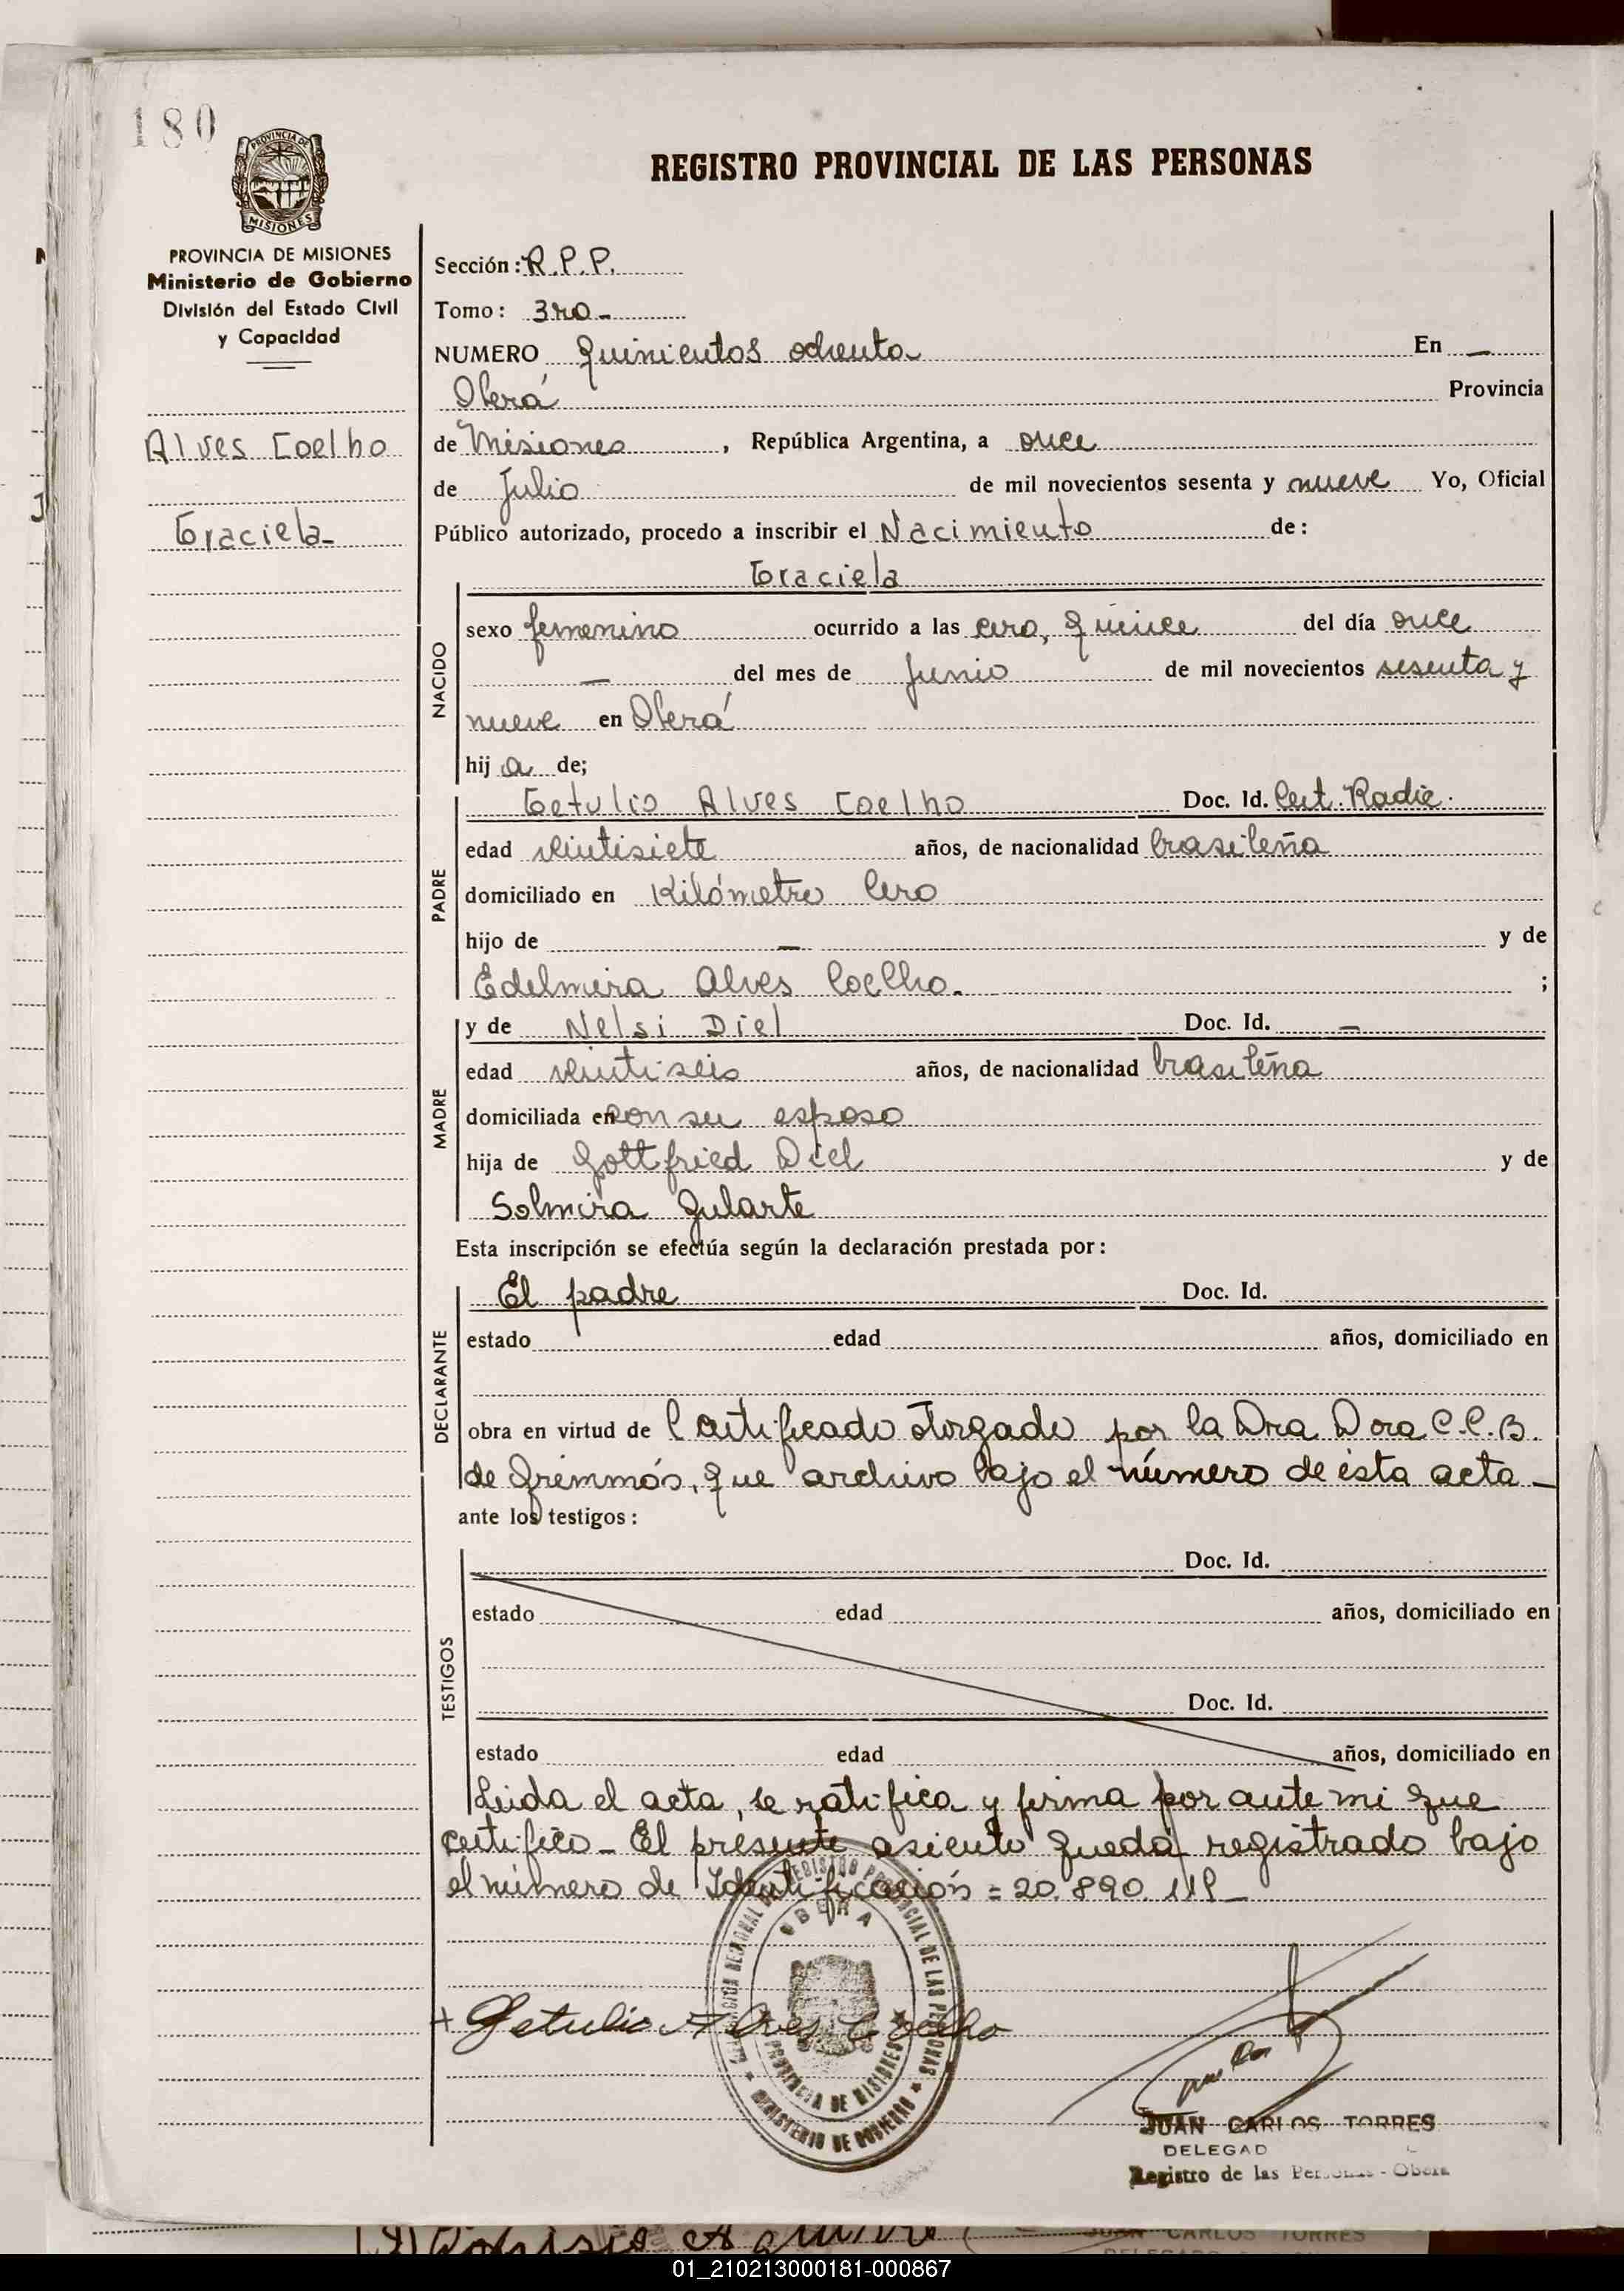 180
PROVINCIA DE
MISIONES
REGISTRO PROVINCIAL DE LAS PERSONAS
PROVINCIA DE MISIONES
Ministerio de Gobierno
División del Estado Civil
y Capacidad
Alves Coelho
Graciela-
Sección: R.P.P.
Tomo: 3ro-
NUMERO Quinientos ochenta En -
Oberá Provincia
de Misiones, República Argentina, a once
de Julio de mil novecientos sesenta y nueve Yo, Oficial
Público autorizado, procedo a inscribir el Nacimiento de:
Graciela
NACIDO
sexo femenino ocurrido a las cero, quince del día once
- del mes de Junio de mil novecientos sesenta y
nueve en Oberá
hij a de;
PADRE
Getulio Alves Coelho Doc. Id. Cert. Radic.
edad veintisiete años, de nacionalidad brasileña
domiciliado en Kilómetro Cero
hijo de - y de
Edelmira Alves Coelho. ;
MADRE
y de Nelsi Diel Doc. Id. -
edad veintiseis años, de nacionalidad brasileña
domiciliada en con su esposo
hija de Gottfried Diel y de
Solmira Gularte
Esta inscripción se efectúa según la declaración prestada por:
DECLARANTE
El padre Doc. Id.
estado edad años, domiciliado en
obra en virtud de Certificado otorgado por la Dra Dora C.C.B.
de que archivo bajo el número de ésta acta-
ante los testigos:
TESTIGOS
Doc. Id.
estado edad años, domiciliado en
Doc. Id.
estado edad años, domiciliado en
Leida el acta, se ratifica y firma por ante mi que
certifico- El presente asiento queda registrado bajo
el número de Identificación = 20.890.118-
+ Getulio Alves Coelho
REGISTRO PROVINCIAL DE LAS PERSONAS
OBERA
PROVINCIA DE MISIONES
MINISTERIO DE GOBIERNO
JUAN CARLOS TORRES
DELEGAD
Registro de las Personas - Oberá
JUAN CARLOS TORRES
01_210213000181-000867